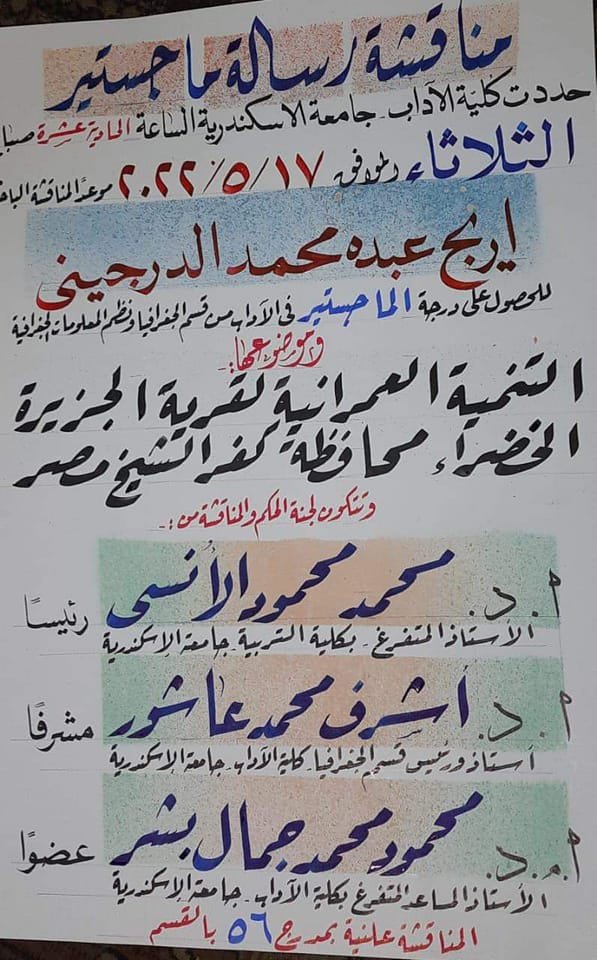 مناقشة رسالة ماجستير
حددت كلية الآداب - جامعة الاسكندرية الساعة الحادية عشرة صبا
الثلاثاء الموافق ٢٠٢٢/٥/١٧ موعدًا لمناقشة الباحـ
اريج عبده محمد الدرجيني
للحصول على درجة الماجستير فى الآداب من قسم الجغرافيا ونظم المعلومات الجغرافية
وموضوعها:
التنمية العمرانية لقرية الجزيرة
الخضراء محافظة كفر الشيخ مصر
وتتكون لجنة الحكم والمناقشة من:-
ا.د. محمد محمود الأنسى
رئيسًا
الأستاذ المتفرغ - بكلية التربية - جامعة الإسكندرية
ا.د. أشرف محمد عاشور
مشرفًا
أستاذ ورئيس قسم الجغرافيا كلية الآداب - جامعة الإسكندرية
ا.م.د. محمود محمد جمال بشر
عضوًا
الأستاذ المساعد المتفرغ بكلية الآداب - جامعة الإسكندرية
المناقشة علنية بمدرج ٥٦ بالقسم